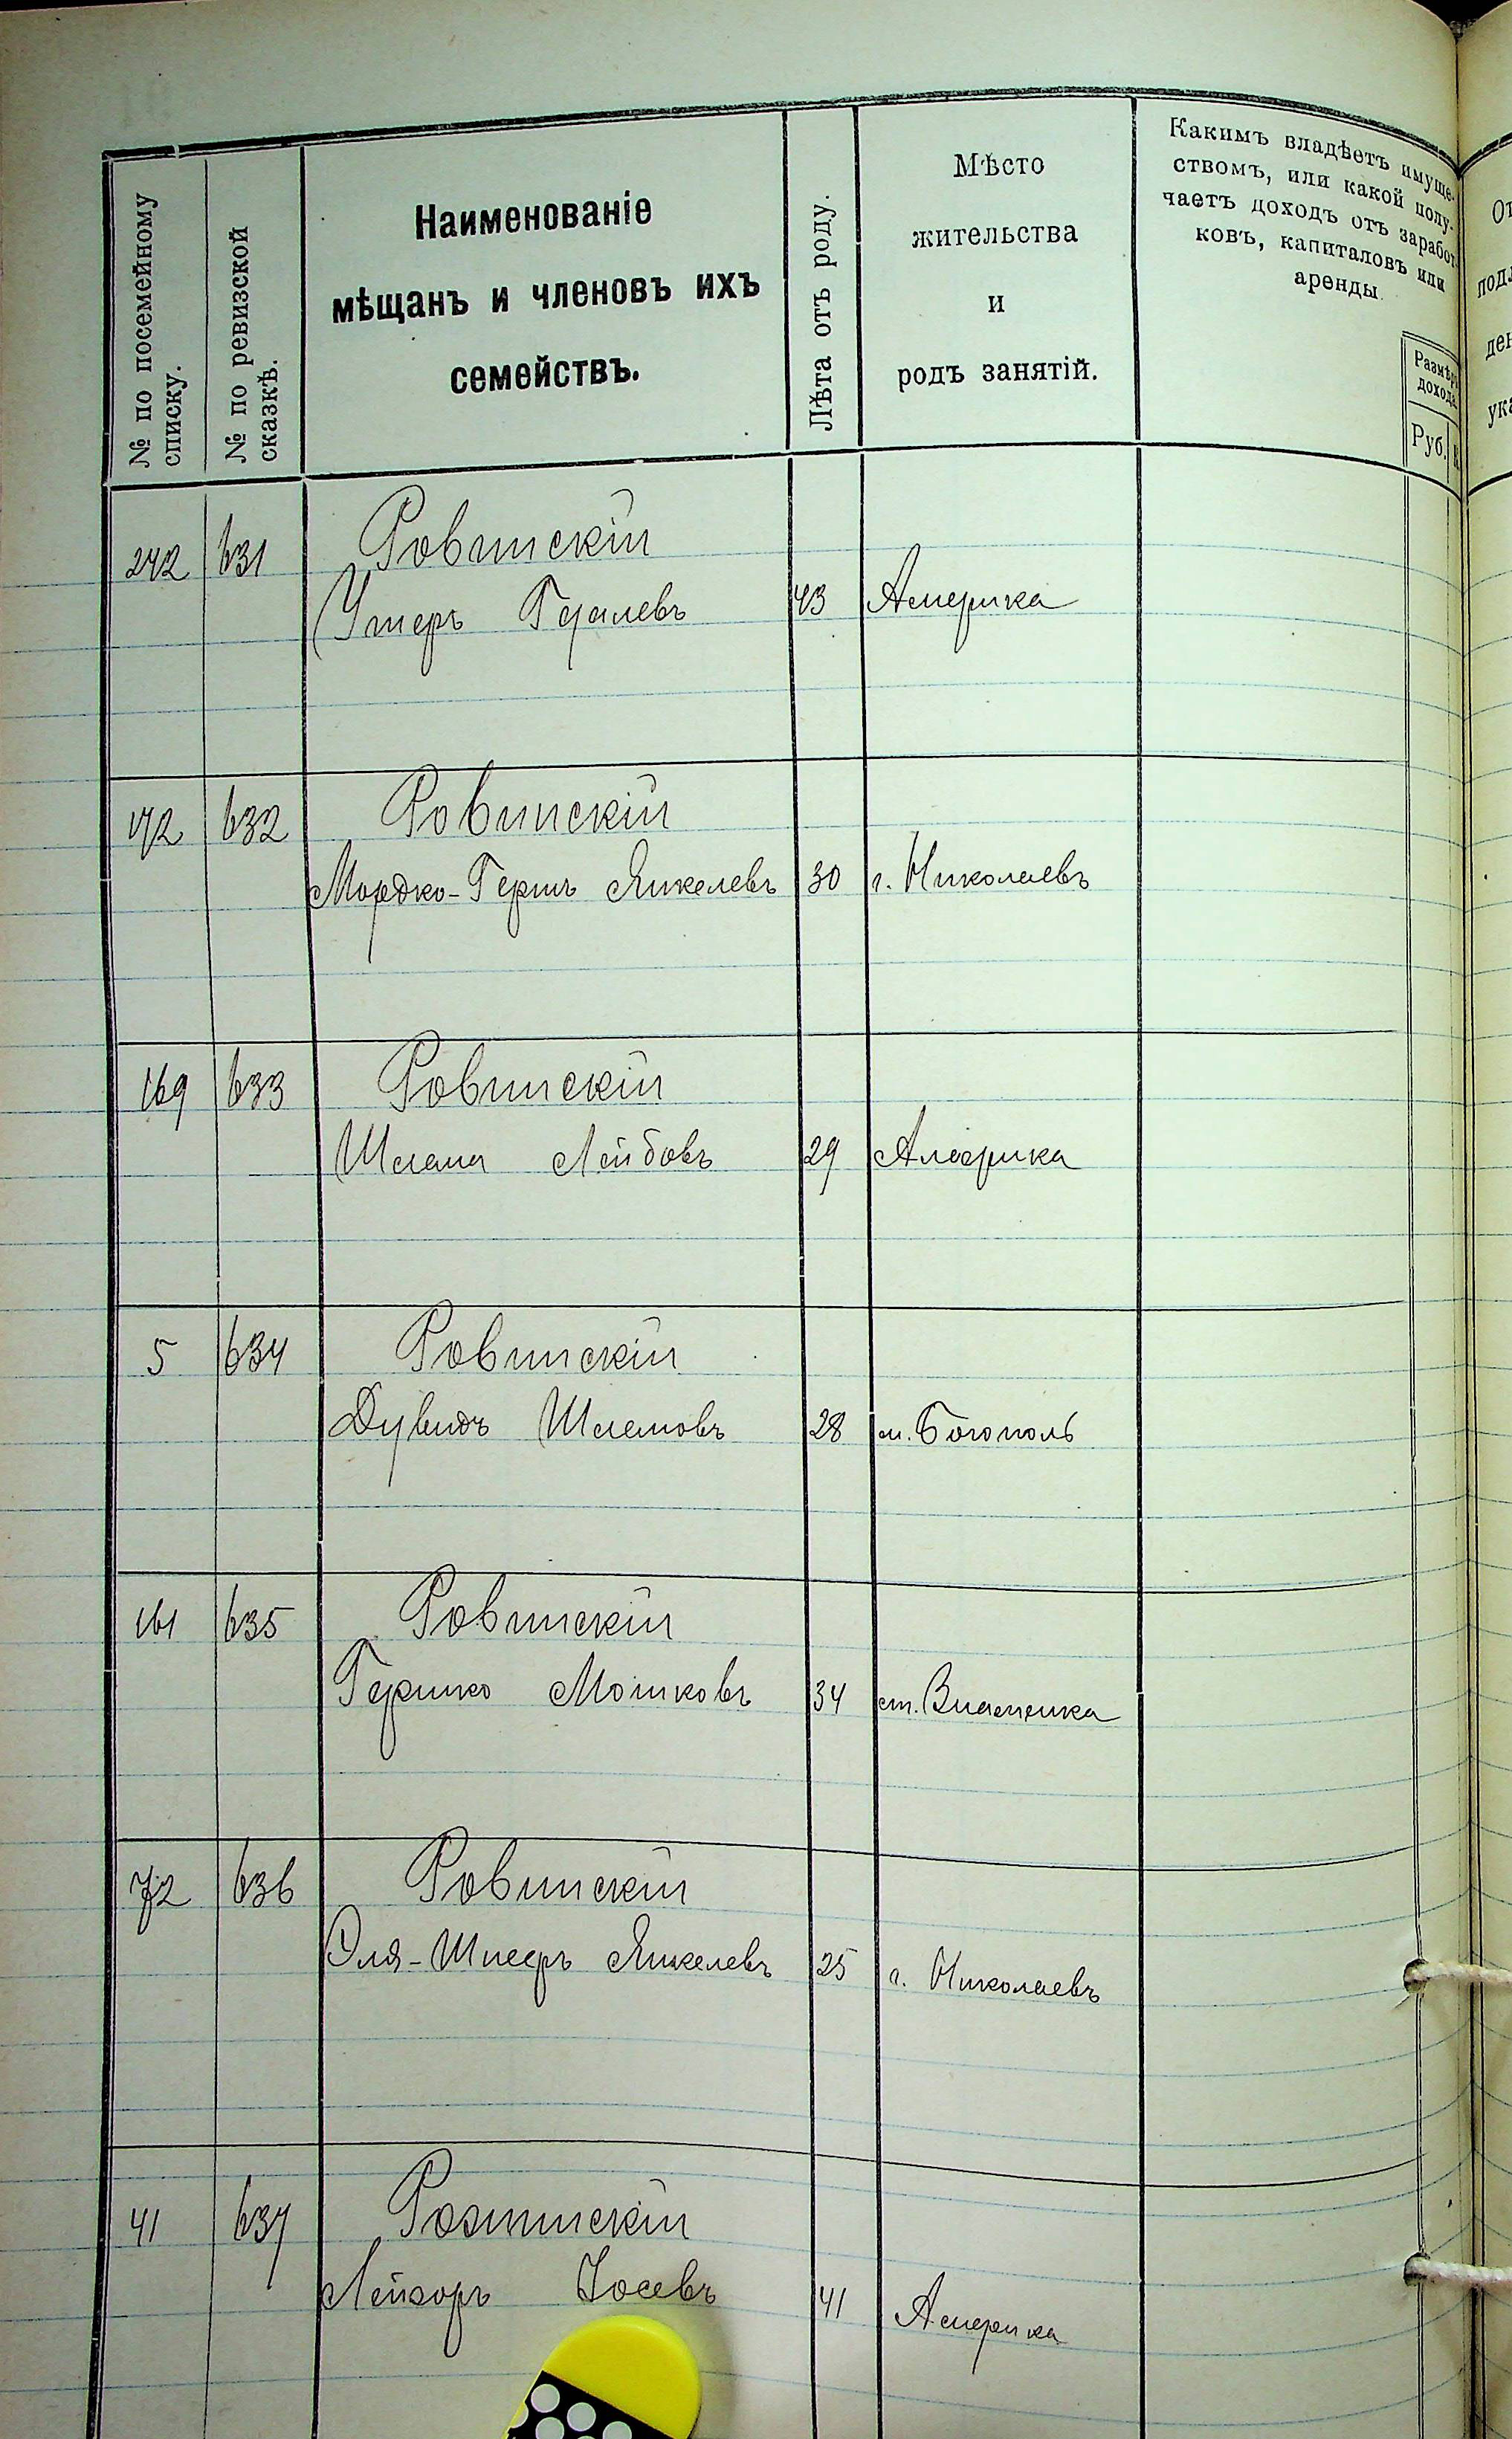 № по посемейному
списку.
№ по ревизской
сказкѣ.
Наименованіе
мѣщанъ и членовъ ихъ
семействъ.
Лѣта отъ роду.
Мѣсто
жительства
и
родъ занятій.
Какимъ владѣетъ имуще-
ствомъ, или какой полу-
чаетъ доходъ отъ заработ-
ковъ, капиталовъ или
аренды.
Размѣръ
дохода.
Руб. К.
242 631 Ровинскій
Ушеръ Гдалевъ 43 Америка
172 632 Ровинскій
Мордко-Гершъ Янкелевъ 30 г. Николаевъ
169 633 Ровинскій
Шлема Лейбовъ 29 Америка
5 634 Ровинскій
Дувидъ Шлемовъ 28 м. Богополь
161 635 Ровинскій
Гершко Мошковъ 34 ст. Знаменка
72 636 Ровинскій
Эля-Шмеръ Янкелевъ 25 г. Николаевъ
41 637
Лейзоръ Іосевъ 41 Америка